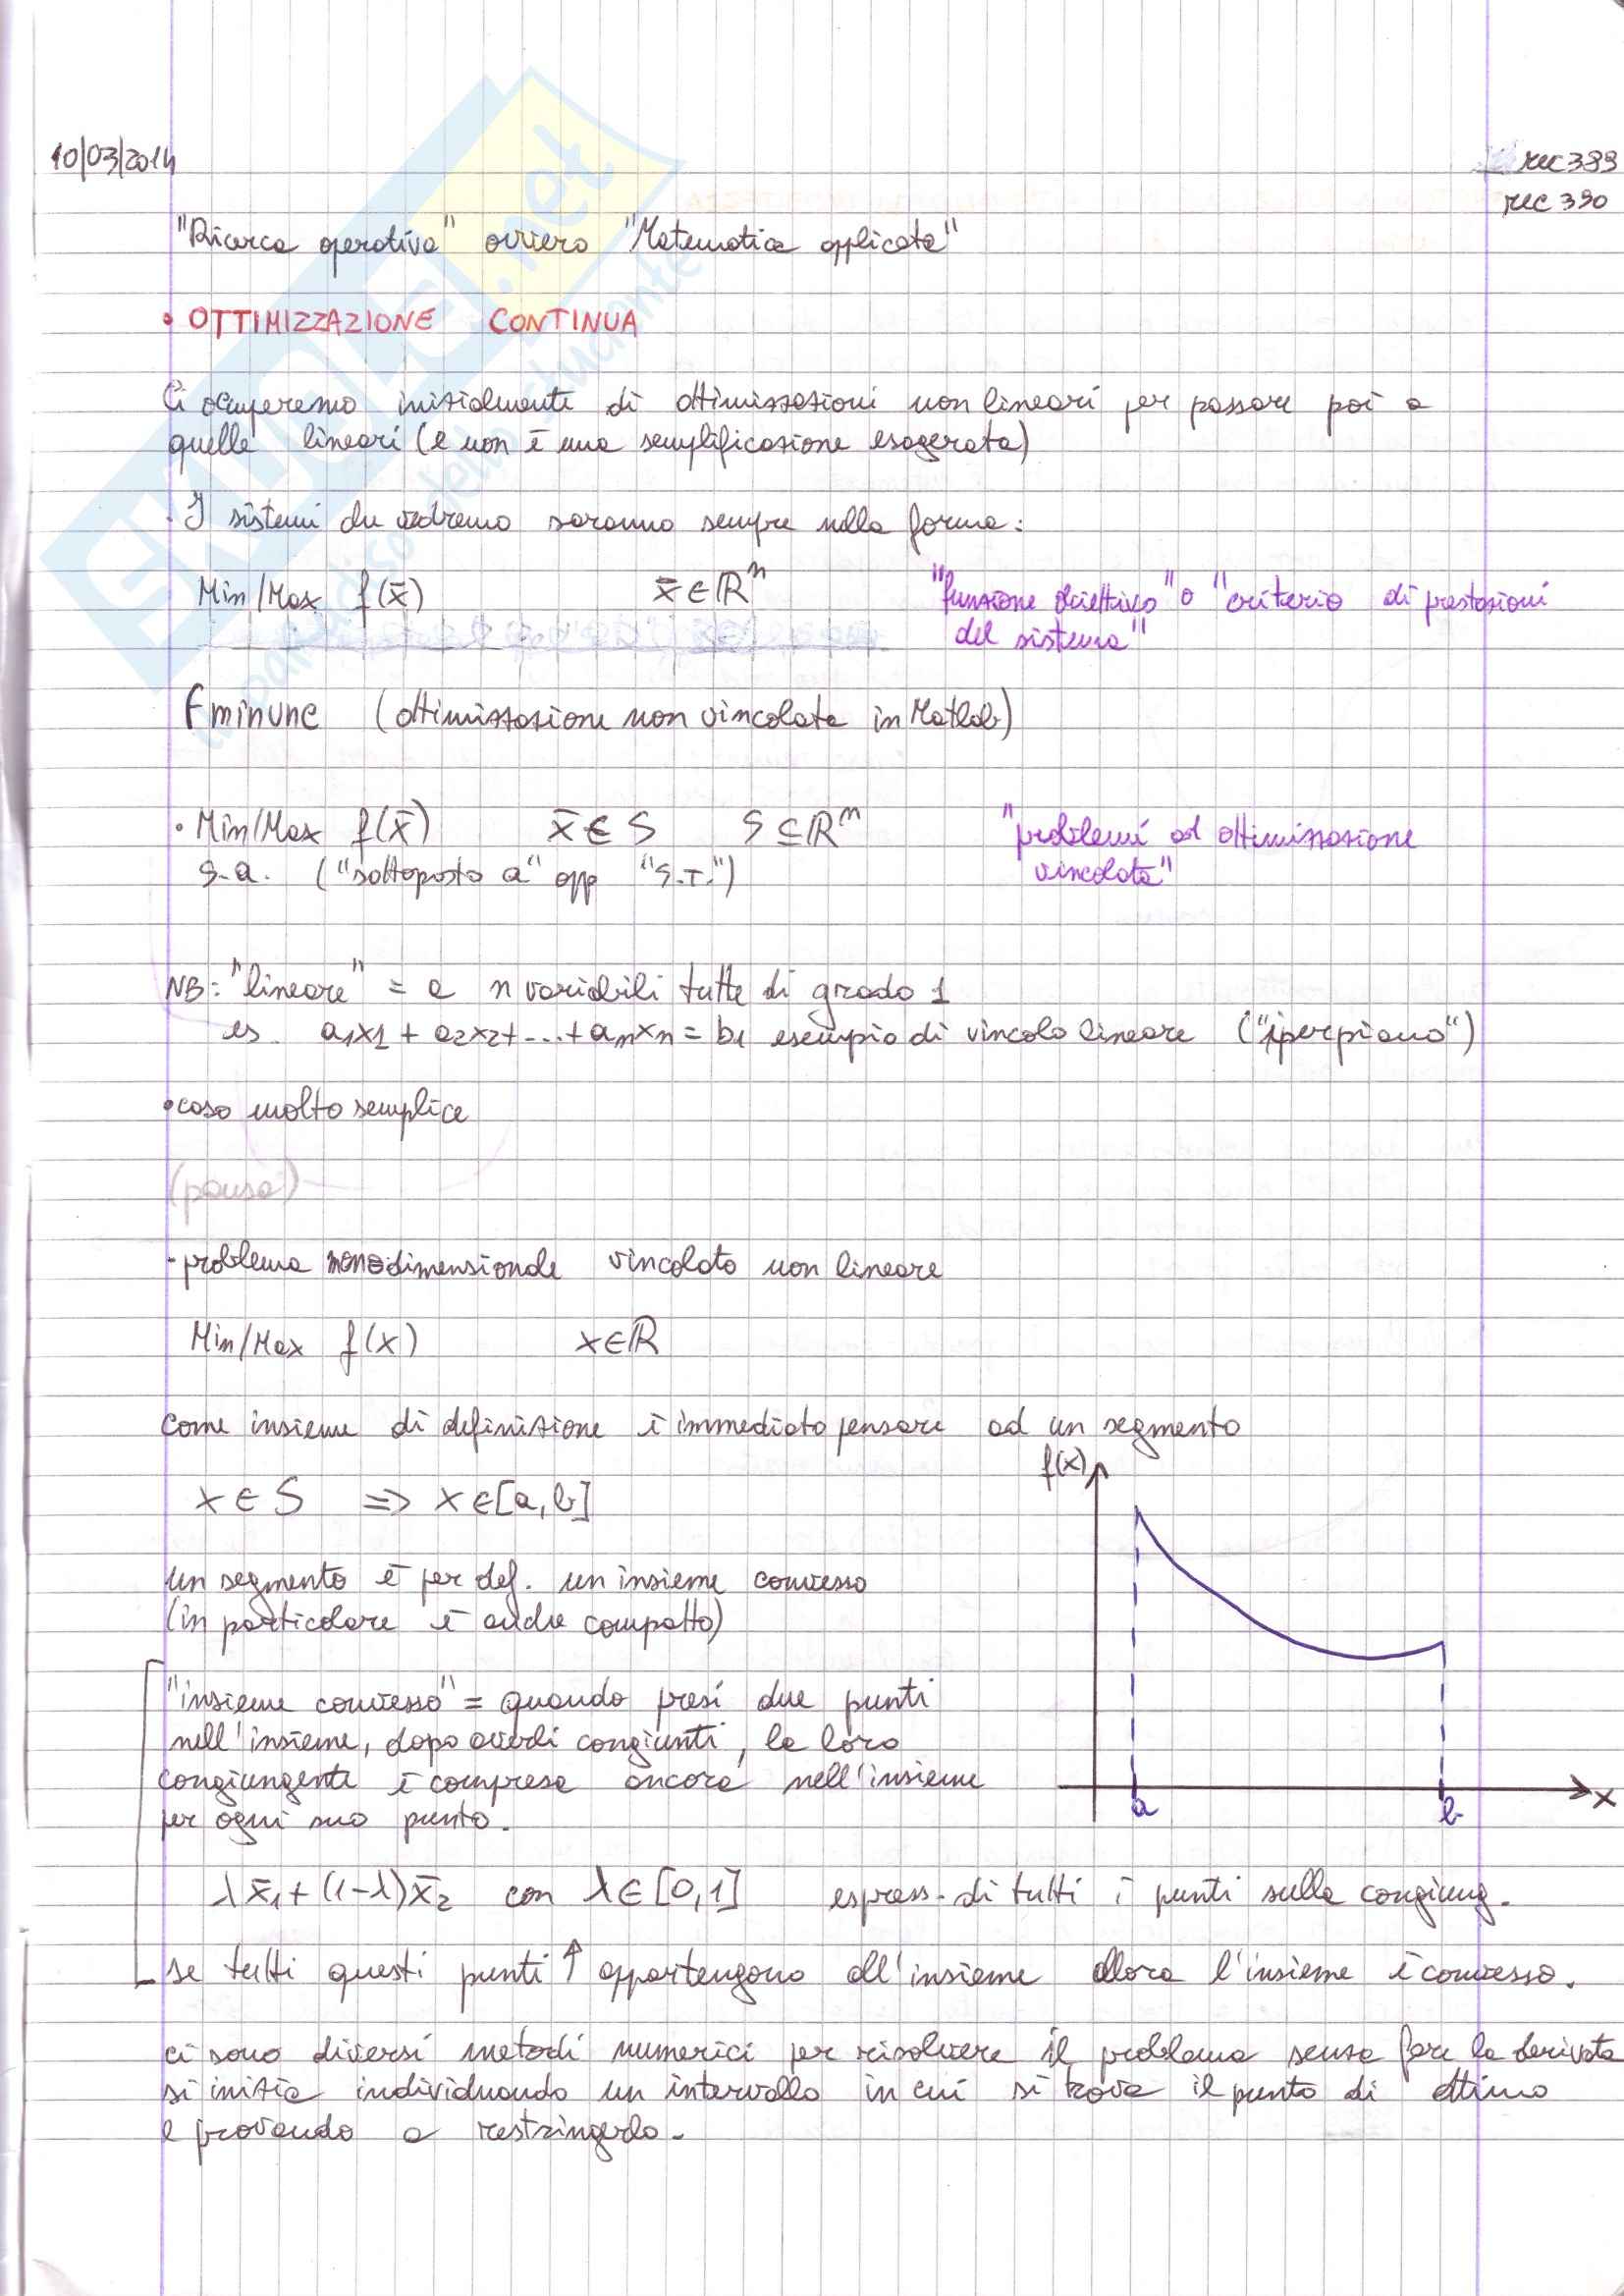 10/03/2014
rec 389
rec 390
"Ricerca operativa" ovvero "Matematica applicata"
• OTTIMIZZAZIONE CONTINUA
Ci occuperemo inizialmente di ottimizzazioni non lineari per passare poi a
quelle lineari (e non è una semplificazione esagerata)
I sistemi che vedremo saranno sempre nella forma:
Min/Max f(x̄) x̄∈ℝⁿ "funzione obiettivo" o "criterio di prestazioni
del sistema"
Fminunc (ottimizzazione non vincolata in Matlab)
• Min/Max f(x̄) x̄∈S S⊆ℝⁿ "problemi ad ottimizzazione
s.a. ("sottoposto a" opp "S.T.") vincolata"
NB: "lineare" = a n variabili tutte di grado 1
es. a₁x₁ + a₂x₂+...+aₙxₙ = b₁ esempio di vincolo lineare ("iperpiano")
• caso molto semplice
(pausa)
- problema monodimensionale vincolato non lineare
Min/Max f(x) x∈ℝ
come insieme di definizione è immediato pensare ad un segmento
f(x)
x∈S ⇒ x∈[a,b]
un segmento è per def. un insieme convesso
(in particolare è anche compatto)
"insieme convesso" = quando presi due punti
nell'insieme, dopo averli congiunti, la loro
congiungente è compresa ancora nell'insieme
per ogni suo punto.
a b x
λx̄₁+(1-λ)x̄₂ con λ∈[0,1] espress. di tutti i punti sulla congiung.
se tutti questi punti ↑ appartengono all'insieme allora l'insieme è convesso.
ci sono diversi metodi numerici per risolvere il problema senza fare la derivata
si inizia individuando un intervallo in cui si trova il punto di ottimo
e provando a restringerlo.
SKUOLA.net